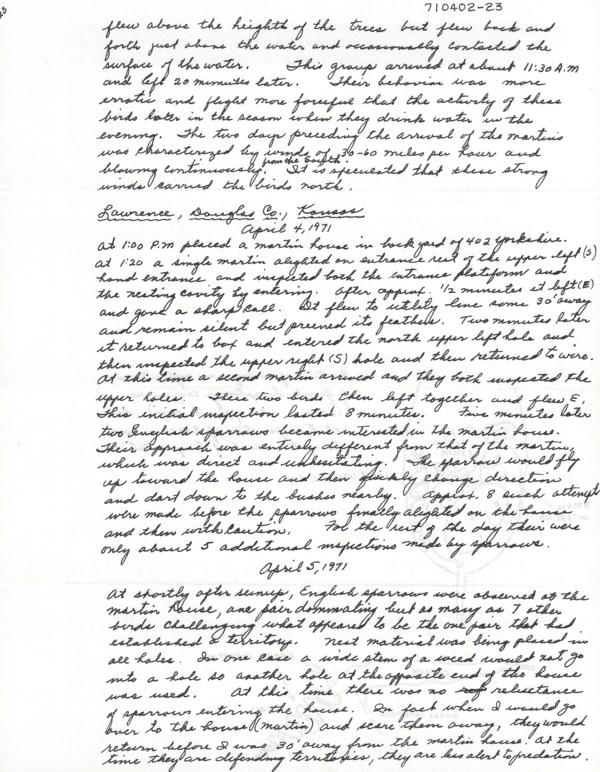 710402-23
flew above the heighth of the trees but flew back and
forth just above the water and occassionally contacted the
surface of the water. This group arrived at about 11:30 A.M
and left 20 minutes later. Their behavior was more
erratic and flight more forceful that the activity of these
birds later in the season when they drink water in the
evening. The two days preceding the arrival of the martins
was characterized by winds of 30-60 miles per hour and
from the South.
blowing continuously, It is speculated that these strong
winds carried the birds north.
Lawrence, Douglas Co., Kansas
April 4, 1971
At 1:00 P.M placed a martin house in back yard of 402 Yorkshire.
At 1:20 a single martin alighted on entrance rest of the upper left (S)
hand entrance and inspected both the entrance platform and
the nesting cavity by entering. After approx. 1/2 minutes it left (E)
and gave a sharp call. It flew to utility line some 30' away
and remain silent but preened its feathers. Two minutes later
it returned to box and entered the north upper left hole and
then inspected the upper right (S) hole and then returned to wire.
At this time a second martin arrived and they both inspected the
upper holes. These two birds then left together and flew E.
This initial inspection lasted 8 minutes. Five minutes later
two English sparrows became interested in the martin house.
Their approach was entirely different from that of the martin,
which was direct and unhesitating. The sparrow would fly
up toward the house and then quickly change direction
and dart down to the bushes nearby. Approx. 8 such attempts
were made before the sparrows finally alighted on the house
and then with caution. For the rest of the day their were
only about 5 additional inspections made by sparrows.
April 5, 1971
At shortly after sunup, English sparrows were observed at the
martin house, one pair dominating but as many as 7 other
birds challenging what appeared to be the one pair that had
established a territory. Nest material was being placed in
all holes. In one case a wide stem of a weed would not go
into a hole so another hole at the opposite end of the house
was used. At this time there was no reluctance
of sparrows entering the house. In fact when I would go
over to the house (martin) and scare them away, they would
return before I was 30' away from the martin house. At the
time they are defending territories, they are less alert to predation.